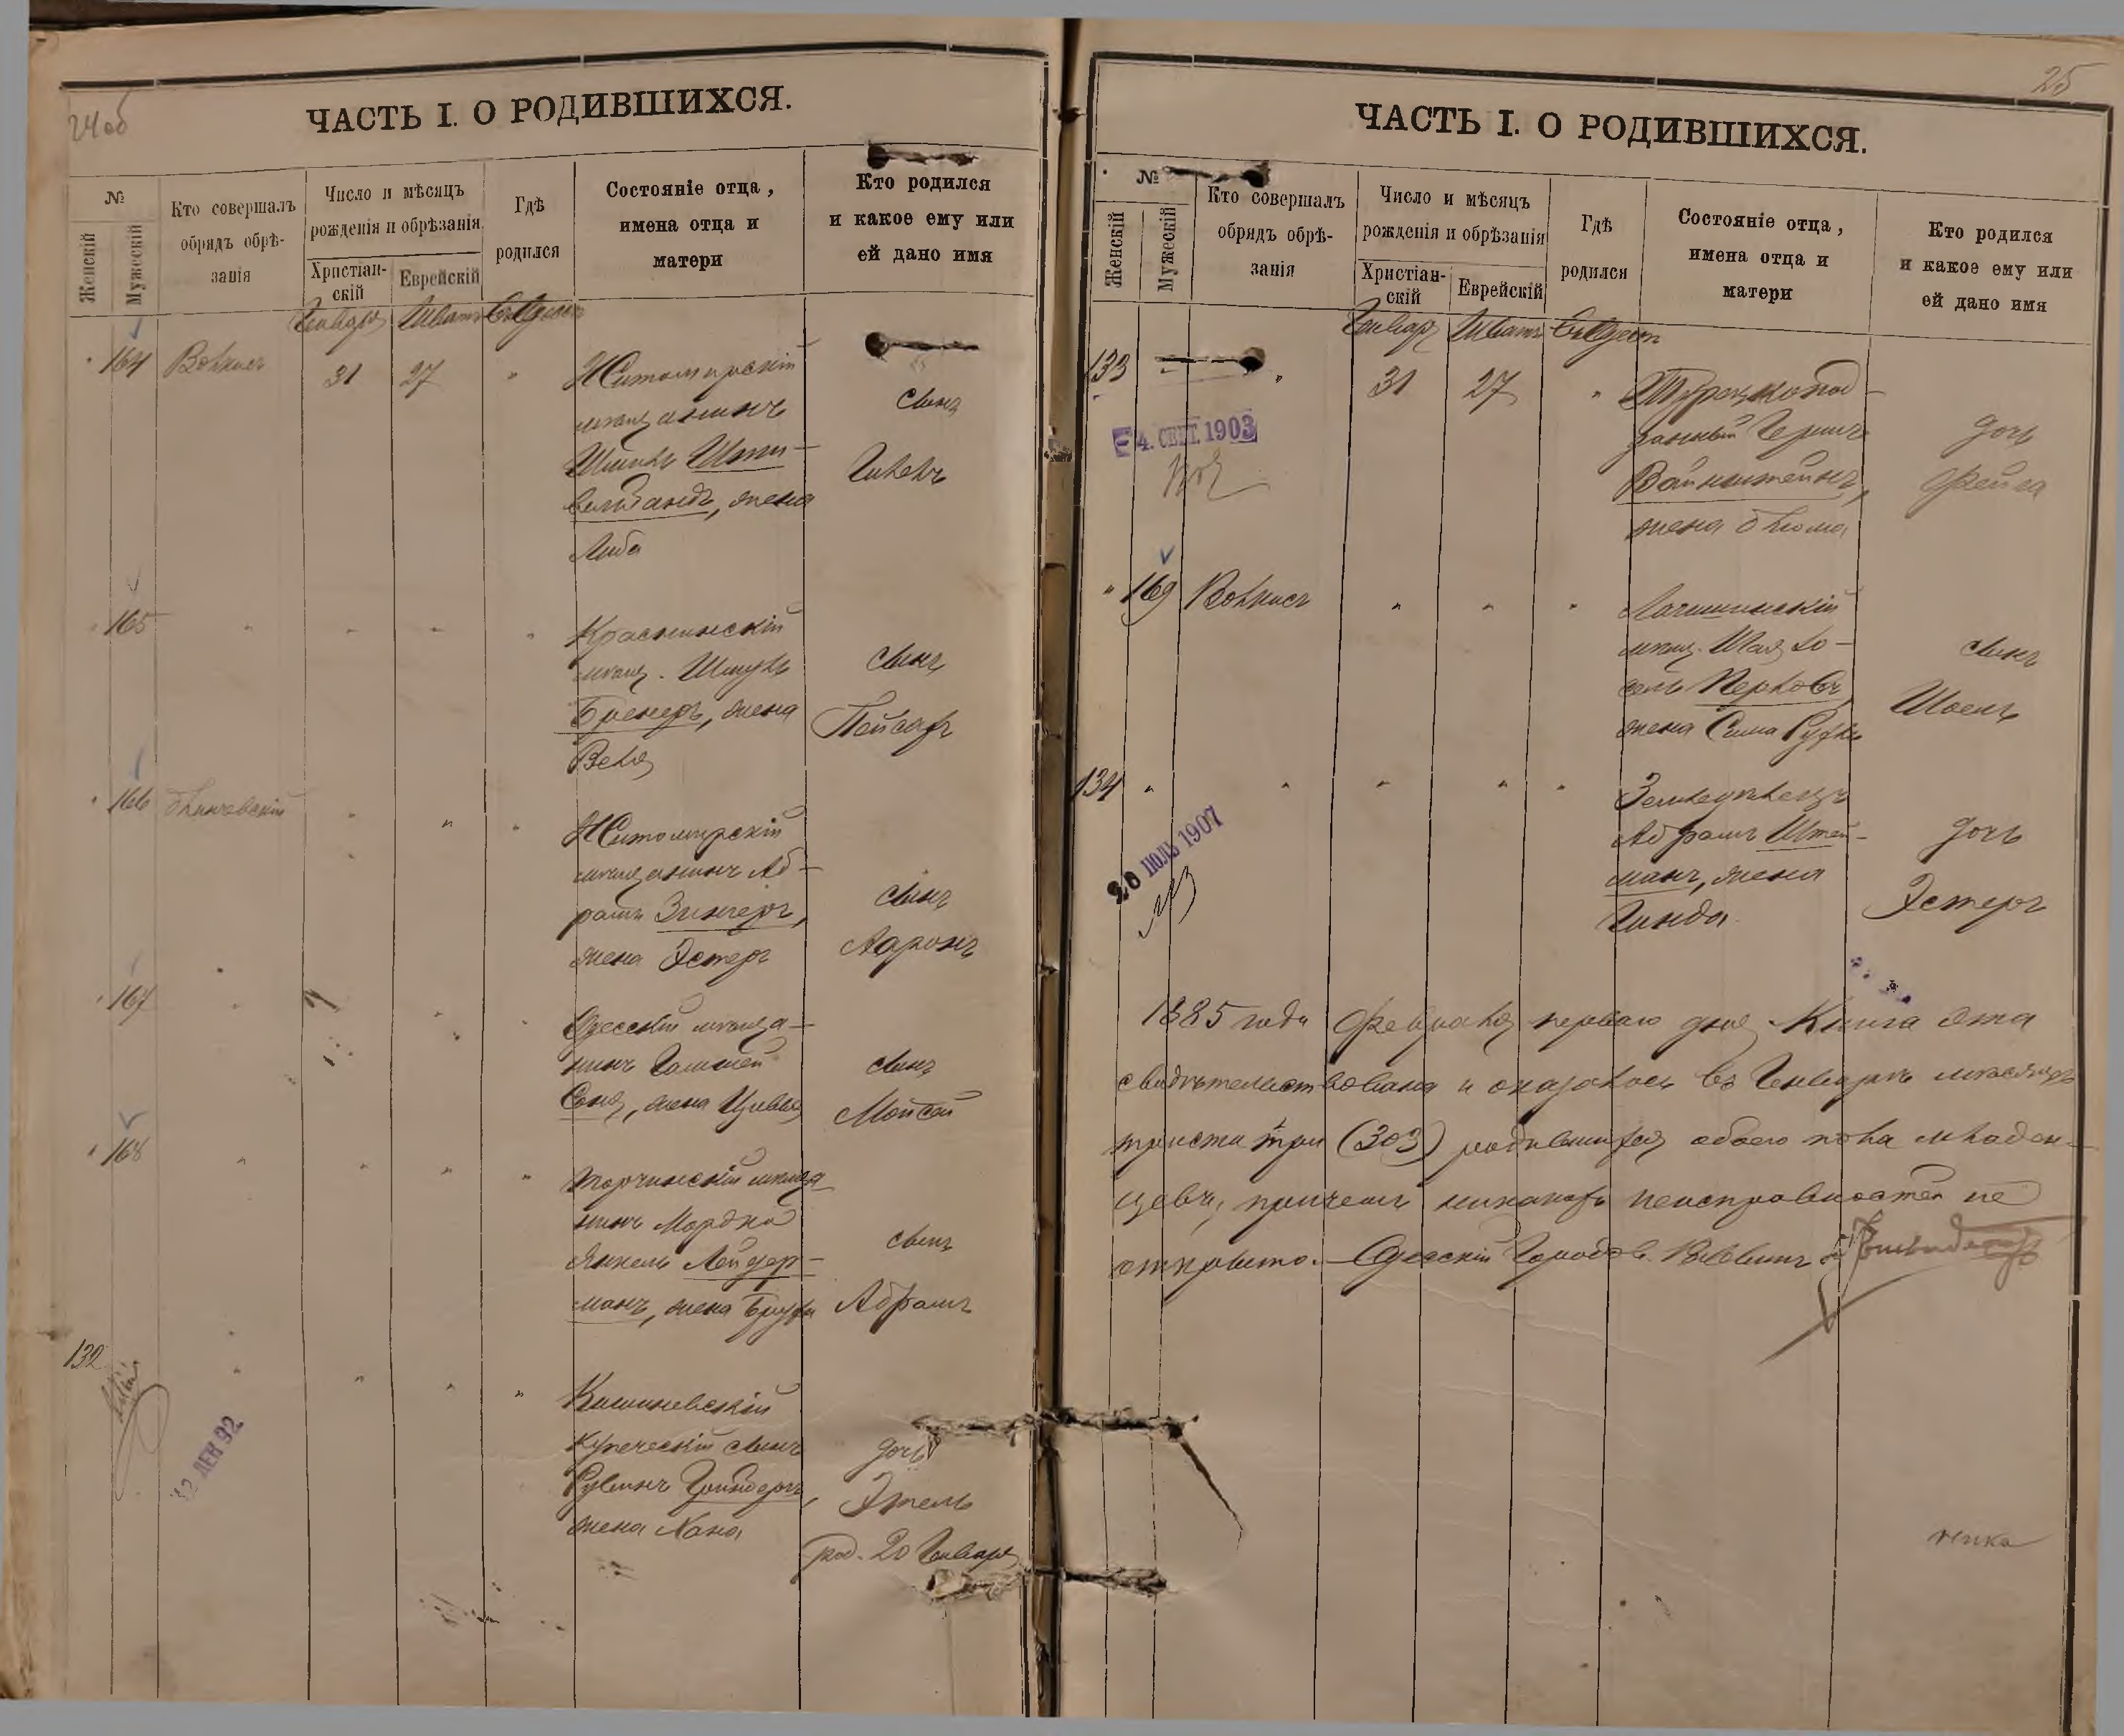 24об
ЧАСТЬ I. О РОДИВШИХСЯ.
№
Женскій
Мужескій
Кто совершалъ
обрядъ обрѣ-
занія
Число и мѣсяцъ
рожденія и обрѣзанія
Христіан-
скій
Еврейскій
Гдѣ
родился
Состояніе отца,
имена отца и
матери
Кто родился
и какое ему или
ей дано имя
Январь Шватъ Въ Одессѣ
164 31 27
Житомирскій
мѣщанинъ
жена
Либа
сынъ
165
Краснинскій
мѣщ. Шмуль
Бренеръ, жена
Веля
сынъ
Пейсахъ
166
Житомирскій
мѣщанинъ Аб-
рамъ Зингеръ,
жена Эстеръ
сынъ
Ааронъ
167
Одесскій мѣща-
нинъ
жена Цивья
сынъ
Мойсей
168
Торчинскій мѣща-
нинъ Мордко
Янкель Лейдер-
манъ, жена Бруха
сынъ
Абрамъ
132
12 ДЕК 92
Кишиневскій
купеческій сынъ
Рувинъ
жена Хана
дочь
Этель
род. 20 Января
25
ЧАСТЬ I. О РОДИВШИХСЯ.
№
Женскій
Мужескій
Кто совершалъ
обрядъ обрѣ-
занія
Число и мѣсяцъ
рожденія и обрѣзанія
Христіан-
скій
Еврейскій
Гдѣ
родился
Состояніе отца,
имена отца и
матери
Кто родился
и какое ему или
ей дано имя
Январь Шватъ Въ Одессѣ
133 31 27
4. СЕНТ. 1903
Турецкопод-
данный Гершъ
Вайнштейнъ,
жена Блюма
дочь
Фейга
169
мѣщ. Шая Іо-
сель Перловъ
жена Сима Рухля
сынъ
Шоель
134
20 ІЮЛЬ 1907
Земледѣлецъ
Абрамъ Штей-
манъ, жена
Гинда
дочь
Эстеръ
1885 года Февраля перваго дня Книга эта
свидѣтельствована и оказалось въ Январѣ мѣсяцѣ
триста три (303) родившихся обоего пола младен-
цевъ, причемъ никакихъ неисправностей не
открыто. Одесскій Городов. Раввинъ